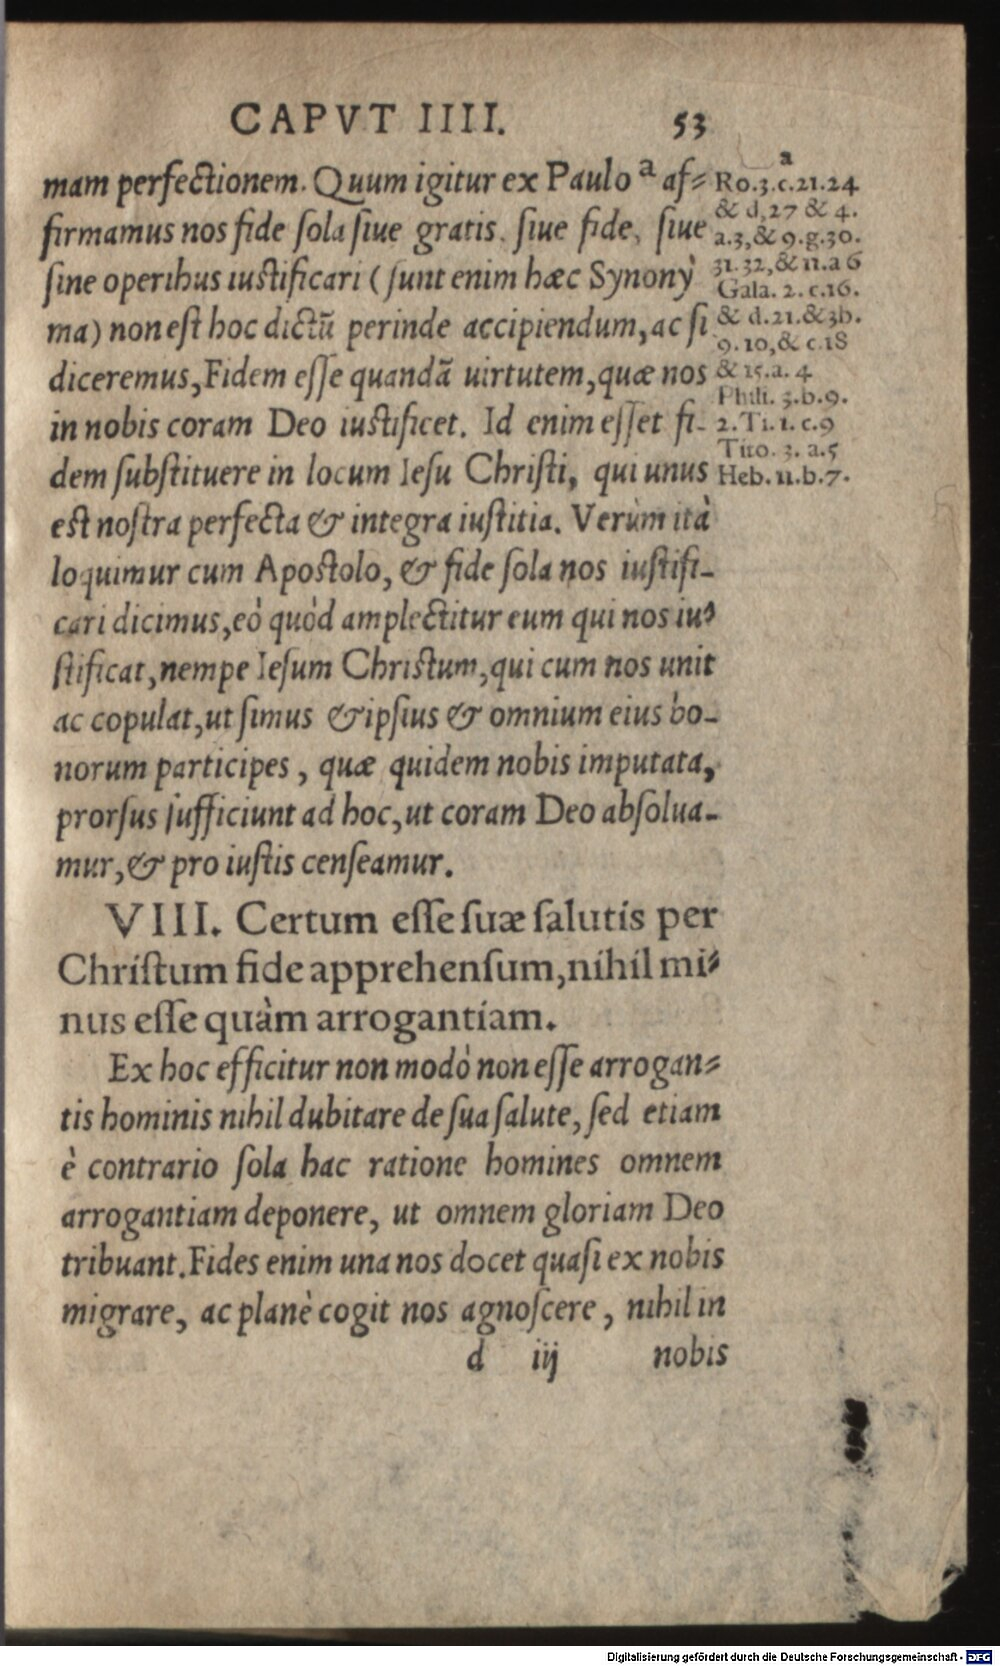 CAPVT IIII. 53
mam perfectionem. Quum igitur ex Paulo a af-
firmamus nos fide sola siue gratis, siue fide, siue
sine operibus iustificari (sunt enim hæc Synony
ma) non est hoc dictũ perinde accipiendum, ac si
diceremus, Fidem esse quandã uirtutem, quæ nos
in nobis coram Deo iustificet. Id enim esset fi-
dem substituere in locum Iesu Christi, qui unus
est nostra perfecta & integra iustitia. Verùm ità
loquimur cum Apostolo, & fide sola nos iustifi-
cari dicimus, eò quòd amplectitur eum qui nos iu-
stificat, nempe Iesum Christum, qui cum nos unit
ac copulat, ut simus & ipsius & omnium eius bo-
norum participes, quæ quidem nobis imputata,
prorsus sufficiunt ad hoc, ut coram Deo absolua-
mur, & pro iustis censeamur.
a
Ro.3.c.21.24
& d.27 & 4.
a.3,& 9.g.30.
31.32,& 11.a 6
Gala. 2. c.16.
& d.21.& 3b.
9.10,& c.18
& 15.a. 4
Phili. 3.b.9.
2.Ti.1. c.9
Tito. 3. a.5
Heb. 11.b.7.
VIII. Certum esse suæ salutis per
Christum fide apprehensum, nihil mi-
nus esse quàm arrogantiam.
Ex hoc efficitur non modò non esse arrogan-
tis hominis nihil dubitare de sua salute, sed etiam
è contrario sola hac ratione homines omnem
arrogantiam deponere, ut omnem gloriam Deo
tribuant. Fides enim una nos docet quasi ex nobis
migrare, ac planè cogit nos agnoscere, nihil in
d iij nobis
Digitalisierung gefördert durch die Deutsche Forschungsgemeinschaft - DFG